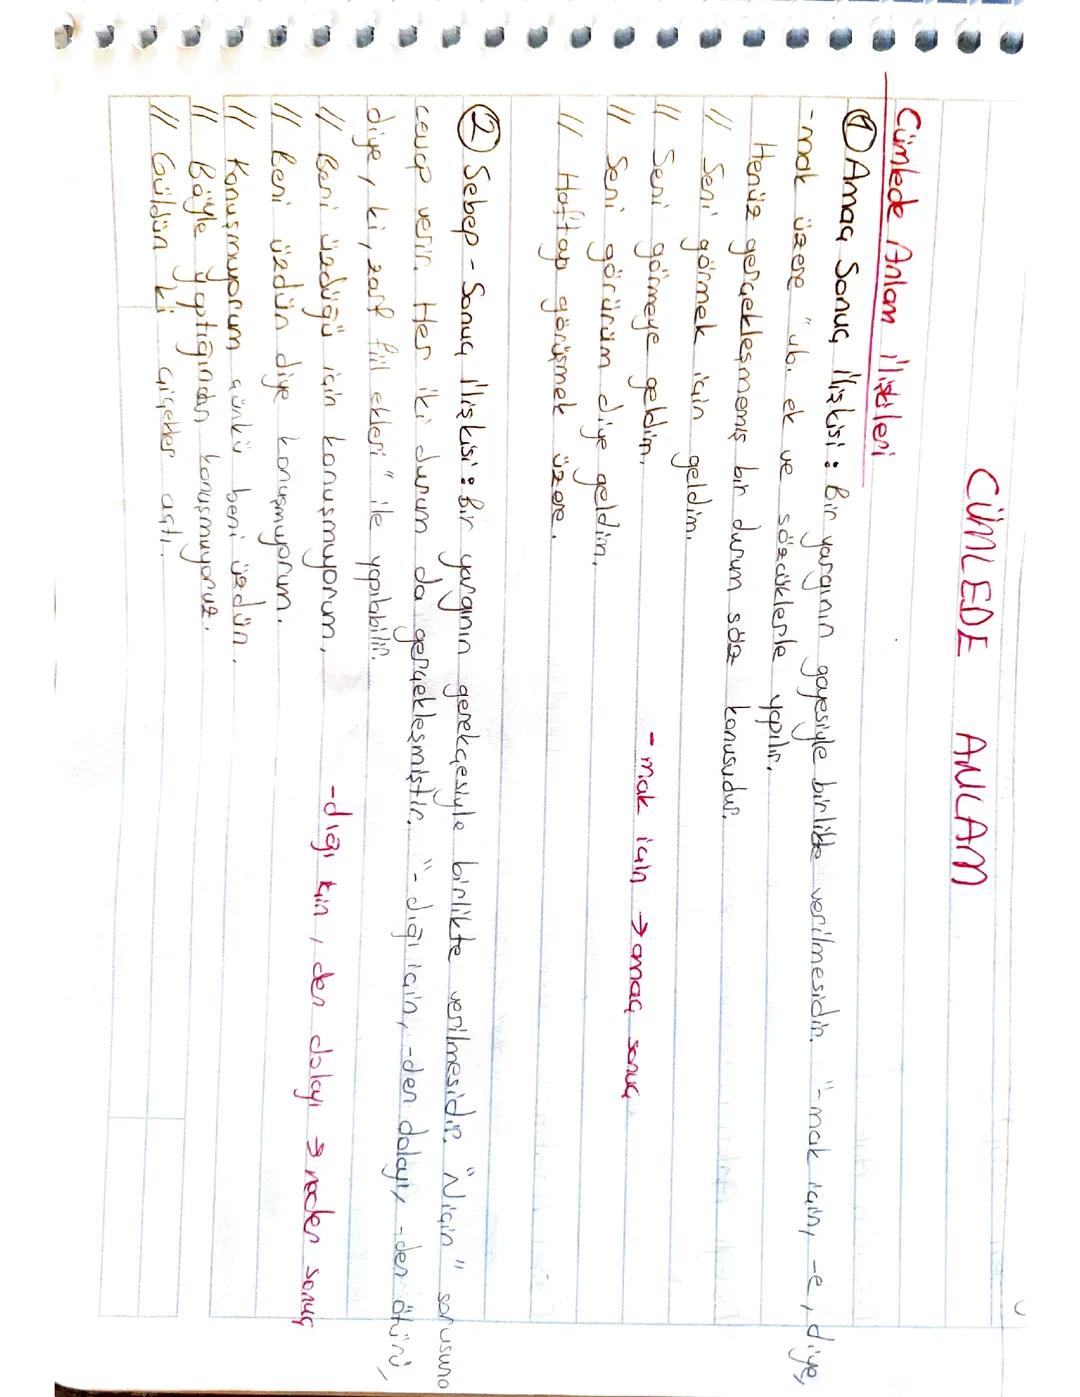 CÜMLEDE ANLAM
Cümlede Anlam İlişkileri
① Amaç Sonuç İlişkisi : Bir yargının gayesiyle birlikte verilmesidir. "-mak için, -e, diye,
-mak üzere" vb. ek ve sözcüklerle yapılır.
Henüz gerçekleşmemiş bir durum söz konusudur.
// Seni görmek için geldim.
// Seni görmeye geldim.
- mak için → amaç sonuç
// Seni görürüm diye geldim.
// Haftaya görüşmek üzere.
② Sebep - Sonuç İlişkisi : Bir yargının gerekçesiyle birlikte verilmesidir. "Niçin" sorusuna
cevap verir. Her iki durum da gerçekleşmiştir. "-dığı için, -den dolayı, -den ötürü,
diye, ki, zarf fiil ekleri" ile yapılabilir.
// Beni üzdüğü için konuşmuyorum.
-dığı için, den dolayı → neden sonuç
// Beni üzdün diye konuşmuyorum.
// Konuşmuyorum çünkü beni üzdün.
// Böyle yaptığından konuşmuyoruz.
// Güldün ki çiçekler açtı.